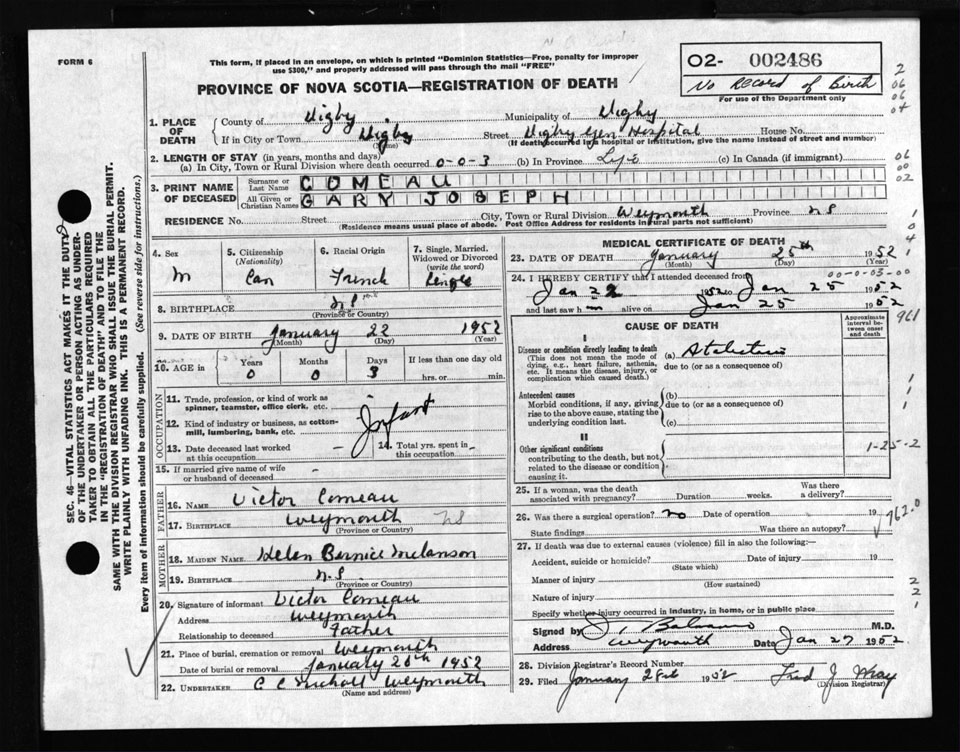 FORM 6
This form, if placed in an envelope, on which is printed "Dominion Statistics—Free, penalty for improper
use $300," and properly addressed will pass through the mail "FREE"
O2- 002486
No Record of Birth
For use of the Department only
PROVINCE OF NOVA SCOTIA—REGISTRATION OF DEATH
1. PLACE OF DEATH
County of Digby Municipality of Digby
If in City or Town Digby Street Digby Gen Hospital House No.
(Name) (If death occurred in a hospital or institution, give the name instead of street and number)
2. LENGTH OF STAY (in years, months and days)
(a) In City, Town or Rural Division where death occurred 0-0-3 (b) In Province Life (c) In Canada (if immigrant)
3. PRINT NAME OF DECEASED
Surname or Last Name COMEAU
All Given or Christian Names GARY JOSEPH
RESIDENCE No. Street City, Town or Rural Division Weymouth Province NS
(Residence means usual place of abode. Post Office Address for residents in rural parts not sufficient)
4. Sex M
5. Citizenship (Nationality) Can
6. Racial Origin French
7. Single, Married, Widowed or Divorced (write the word) Single
8. BIRTHPLACE N S
(Province or Country)
9. DATE OF BIRTH January 22 1952
(Month) (Day) (Year)
10. AGE in Years Months Days If less than one day old
0 0 3 hrs. or min.
OCCUPATION
11. Trade, profession, or kind of work as spinner, teamster, office clerk, etc.
Infant
12. Kind of industry or business, as cotton-mill, lumbering, bank, etc.
13. Date deceased last worked at this occupation
14. Total yrs. spent in this occupation
15. If married give name of wife or husband of deceased
FATHER
16. NAME Victor Comeau
17. BIRTHPLACE Weymouth NS
(Province or Country)
MOTHER
18. MAIDEN NAME Helen Bernice Melanson
19. BIRTHPLACE N.S
(Province or Country)
20. Signature of informant Victor Comeau
Address Weymouth
Relationship to deceased Father
21. Place of burial, cremation or removal Weymouth
Date of burial or removal January 26th 1952
22. UNDERTAKER Weymouth
(Name and address)
MEDICAL CERTIFICATE OF DEATH
23. DATE OF DEATH January 25th 1952
(Month) (Day) (Year)
24. I HEREBY CERTIFY that I attended deceased from 00-0-03-00
Jan 22 1952 to Jan 25 1952
and last saw h alive on Jan 25 1952
CAUSE OF DEATH
Approximate interval between onset and death
961
I
Disease or condition directly leading to death
(This does not mean the mode of dying, e.g., heart failure, asthenia, etc. It means the disease, injury, or complication which caused death.)
(a)
due to (or as a consequence of)
Antecedent causes
Morbid conditions, if any, giving rise to the above cause, stating the underlying condition last.
(b)
due to (or as a consequence of)
(c)
II
Other significant conditions
contributing to the death, but not related to the disease or condition causing it.
1-25-2
25. If a woman, was the death associated with pregnancy? Duration weeks. Was there a delivery?
26. Was there a surgical operation? no Date of operation 19
762.0
State findings Was there an autopsy?
27. If death was due to external causes (violence) fill in also the following:
Accident, suicide or homicide? Date of injury 19
(State which)
Manner of injury
(How sustained)
Nature of injury
Specify whether injury occurred in industry, in home, or in public place
Signed by M.D.
Address Weymouth Date Jan 27 1952
28. Division Registrar's Record Number
29. Filed January 28th 1952 Fred J. Wray
(Division Registrar)
SEC. 46—VITAL STATISTICS ACT MAKES IT THE DUTY
OF THE UNDERTAKER OR PERSON ACTING AS UNDER-
TAKER TO OBTAIN ALL THE PARTICULARS REQUIRED
IN THE "REGISTRATION OF DEATH" AND TO FILE THE
SAME WITH THE DIVISION REGISTRAR WHO SHALL ISSUE THE BURIAL PERMIT.
WRITE PLAINLY WITH UNFADING INK. THIS IS A PERMANENT RECORD.
Every item of information should be carefully supplied. (See reverse side for instructions.)